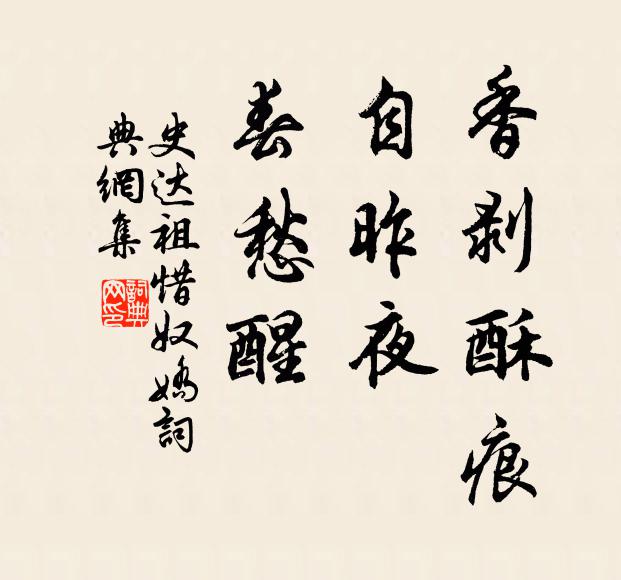 香剥酥痕
自昨夜
春愁醒
史达祖惜奴嬌詞
典網集
詞典网印